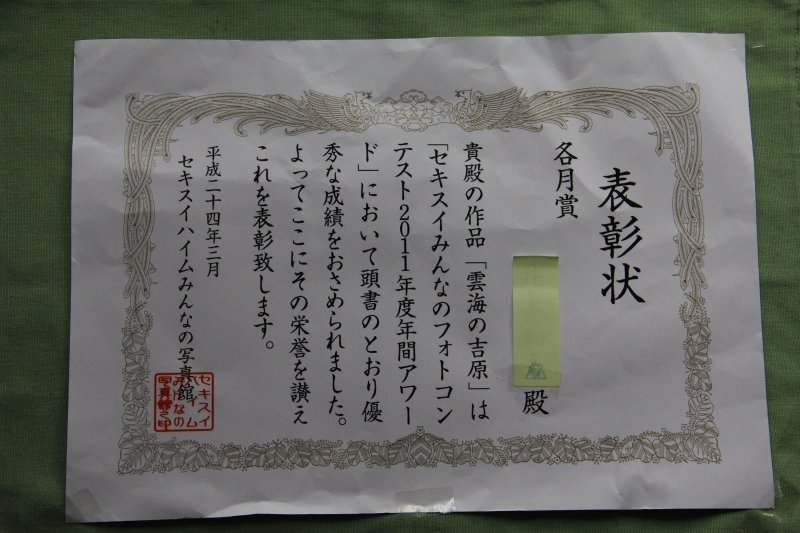 表彰状
各月賞
殿
貴殿の作品「雲海の吉原」は
「セキスイみんなのフォトコン
テスト2011年度年間アワー
ド」において頭書のとおり優
秀な成績をおさめられました。
よってここにその栄誉を讃え
これを表彰致します。
平成二十四年三月
セキスイハイムみんなの写真館
セキスイ
ハイム
みんなの
写真館之印